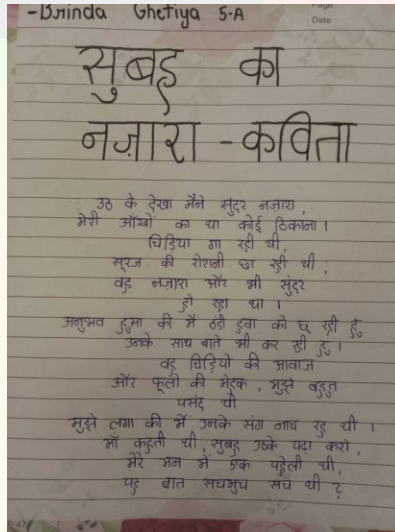 -Brinda Ghetiya 5-A
Page:
Date:
सुबह का
नज़ारा - कविता
उठ के देखा मैने सुंदर नज़ारा,
मेरी आँखों का था कोई ठिकाना।
चिड़िया गा रही थी,
सूरज की रोशनी छा रही थी;
वह नज़ारा और भी सुंदर
हो रहा था।
अनुभव हुआ की मैं ठंडी हवा को छू रही हुँ
उनके साथ बाते भी कर रही हु।
वह चिड़ियो की आवाज
और फूलो की मेहक, मुझे बहुत
पसंद थी
मुझे लगा की मैं उनके संग नाच रह थी।
माँ कहती थी, सुबह उठके पढ़ा करो,
मेरे मन में एक पहेली थी,
यह बात सचमुच सच थी?